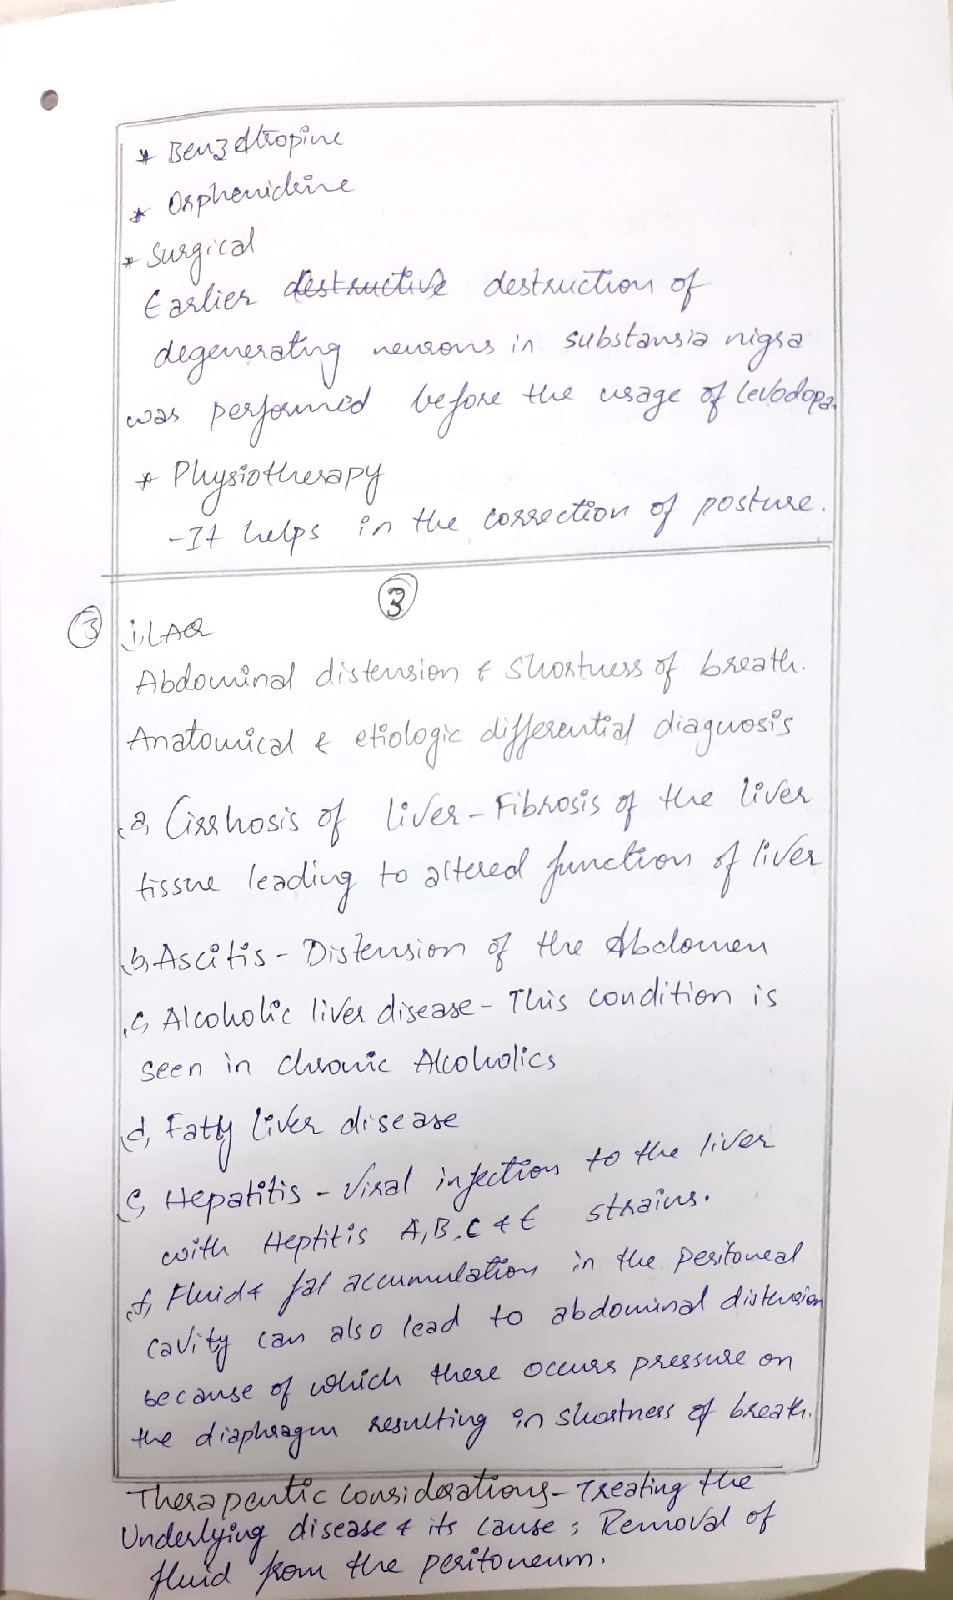 * Benzotropine
* Orphenidrine
* Surgical
Earlier destructive destruction of
degenerating neurons in substansia nigra
was performed before the usage of levodopa.
* Physiotherapy
- It helps in the correction of posture.
3
3 i, LAQ
Abdominal distension & Shortness of breath.
Anatomical & etiologic differential diagnosis
a, Cirrhosis of liver - Fibrosis of the liver
tissue leading to altered function of liver
b, Ascitis - Distension of the Abdomen
c, Alcoholic liver disease - This condition is
seen in chronic Alcoholics
d, Fatty liver disease
e, Hepatitis - Viral infection to the liver
with Heptitis A, B, C & E strains.
f, Fluid & fat accumulation in the peritoneal
cavity can also lead to abdominal distension
because of which there occurs pressure on
the diaphragm resulting in shortness of breath.
Therapeutic considerations - Treating the
Underlying disease & its cause; Removal of
fluid from the peritoneum.